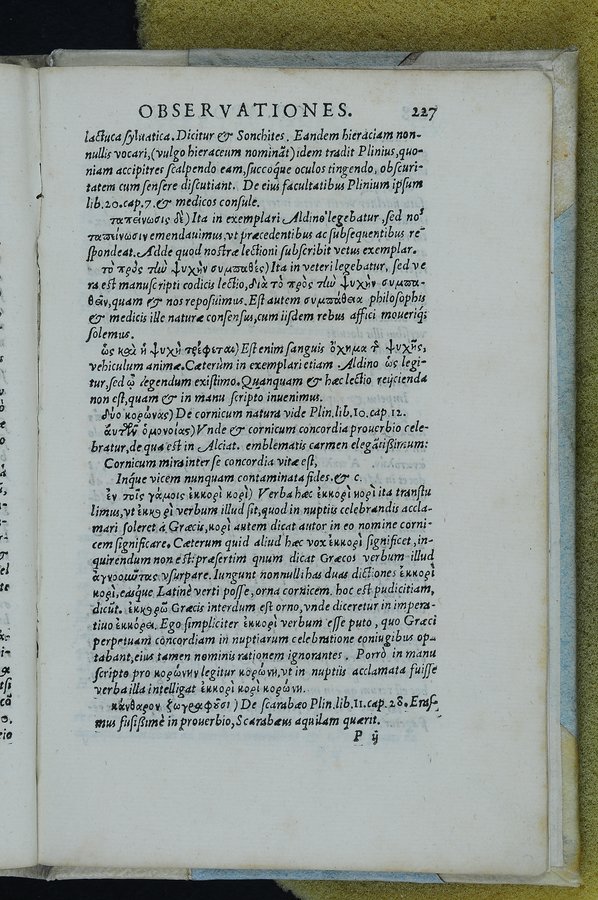 OBSERVATIONES. 227
lactuca syluatica. Dicitur & Sonchites. Eandem hieraciam non-
nullis vocari, (vulgo hieraceum nominãt) idem tradit Plinius, quo-
niam accipitres scalpendo eam, succoque oculos tingendo, obscuri-
tatem cum sensere discutiant. De eius facultatibus Plinium ipsum
lib.20.cap.7. & medicos consule.
ταπείνωσις δὲ) Ita in exemplari Aldino legebatur, sed nos
ταπείνωσιν emendauimus, vt præcedentibus ac subsequentibus re-
spondeat. Adde quod nostræ lectioni subscribit vetus exemplar.
τὸ πρὸς τὼ ψυχὴν συμπαθὲς) Ita in veteri legebatur, sed ve
ra est manuscripti codicis lectio, διὰ τὸ πρὸς τὼ ψυχὴν συμπα-
θεῖν, quam & nos reposuimus. Est autem συμπάθεια philosophis
& medicis ille naturæ consensus, cum iisdem rebus affici moueriq́;
solemus.
ὡς καὶ ἡ ψυχὴ τρέφεται) Est enim sanguis ὄχημα τ̃ ψυχῆς,
vehiculum animæ. Cæterùm in exemplari etiam Aldino ὡς legi-
tur, sed ᾧ legendum existimo. Quanquam & hæc lectio reijcienda
non est, quam & in manu scripto inuenimus.
δύο κορώνας) De cornicum natura vide Plin.lib.10.cap.12.
αὐτῶν ὁμονοίας) Vnde & cornicum concordia prouerbio cele-
bratur, de qua est in Alciat. emblematis carmen elegãtissimum:
Cornicum mira inter se concordia vitæ est,
Inque vicem nunquam contaminata fides. & c.
ἐν τοῖς γάμοις ἐκκορὶ κορὶ) Verba hæc ἐκκορὶ κορὶ ita transtu
limus, vt ἐκκορὶ verbum illud sit, quod in nuptiis celebrandis accla-
mari soleret à Græcis, κορὶ autem dicat autor in eo nomine corni-
cem significare. Cæterum quid aliud hæc vox ἐκκορὶ significet, in-
quirendum non est: præsertim qnum dicat Græcos verbum illud
ἀγνοοιῶτας vsurpare. Iungunt nonnulli has duas dictiones ἐκκορὶ
κορὶ, easque Latinè verti posse, orna cornicem. hoc est pudicitiam,
dicũt. ἐκκορῶ Græcis interdum est orno, vnde diceretur in impera-
tiuo ἐκκόρει. Ego simpliciter ἐκκορὶ verbum esse puto, quo Græci
perpetuam concordiam in nuptiarum celebratione coniugibus op-
tabant, eius tamen nominis rationem ignorantes. Porrò in manu
scripto pro κορώνην legitur κορώνη, vt in nuptiis acclamata fuisse
verba illa intelligat ἐκκορὶ κορὶ κορώνη.
κάνθαρον ζωγραφοῦσι) De scarabæo Plin.lib.11.cap.28. Eras-
mus fusissimè in prouerbio, Scarabæus aquilam quærit.
P ij